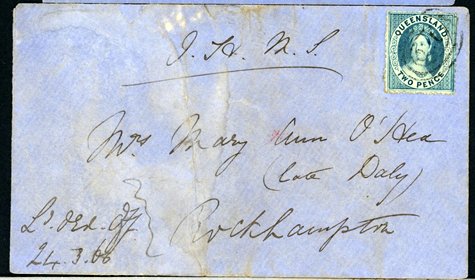 QUEENSLAND
TWO PENCE
O. H. M. S.
Mrs Mary Ann O'Hea
(late Daly)
Rockhampton
24.3.66